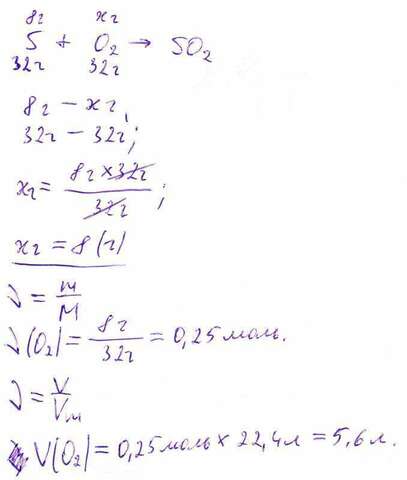 8г xг
S + O₂ → SO₂
32г 32г
8г – xг,
32г – 32г;
xг = 8г × 32г / 32г ;
xг = 8 (г)
ν = m/M
ν(O₂) = 8г/32г = 0,25 моль.
ν = V/Vm
V(O₂) = 0,25 моль × 22,4 л = 5,6 л.